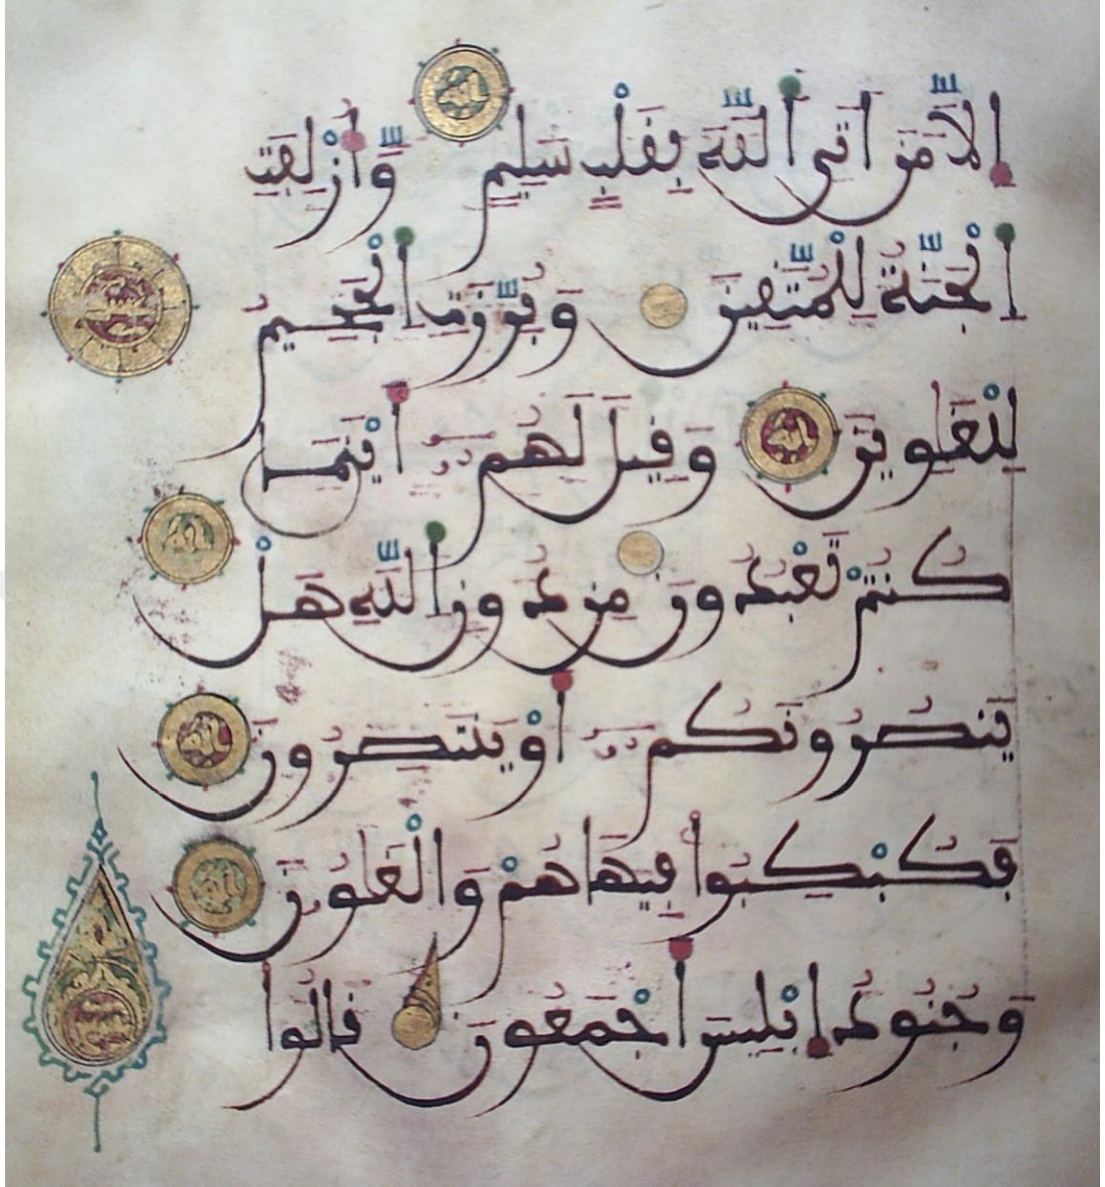 إِلَّا مَنْ اَتَى اَللَّهَ بِقَلْبٍ سَلِيمٍ وَأُزْلِفَتِ
اِ۬لْجَنَّةُ لِلْمُتَّقِينَ وَبُرِّزَتِ اِ۬لْجَحِيمُ
لِلْغَاوِينَ وَقِيلَ لَهُمُۥ أَيْنَمَا
كُنتُمْ تَعْبُدُونَ مِن دُونِ اِ۬للَّهِ هَلْ
يَنصُرُونَكُمُۥ أَوْ يَنتَصِرُونَ
فَكُبْكِبُوا فِيهَا هُمْ وَالْغَاوُونَ
وَجُنُودُ إِبْلِيسَ أَجْمَعُونَ قَالُوا